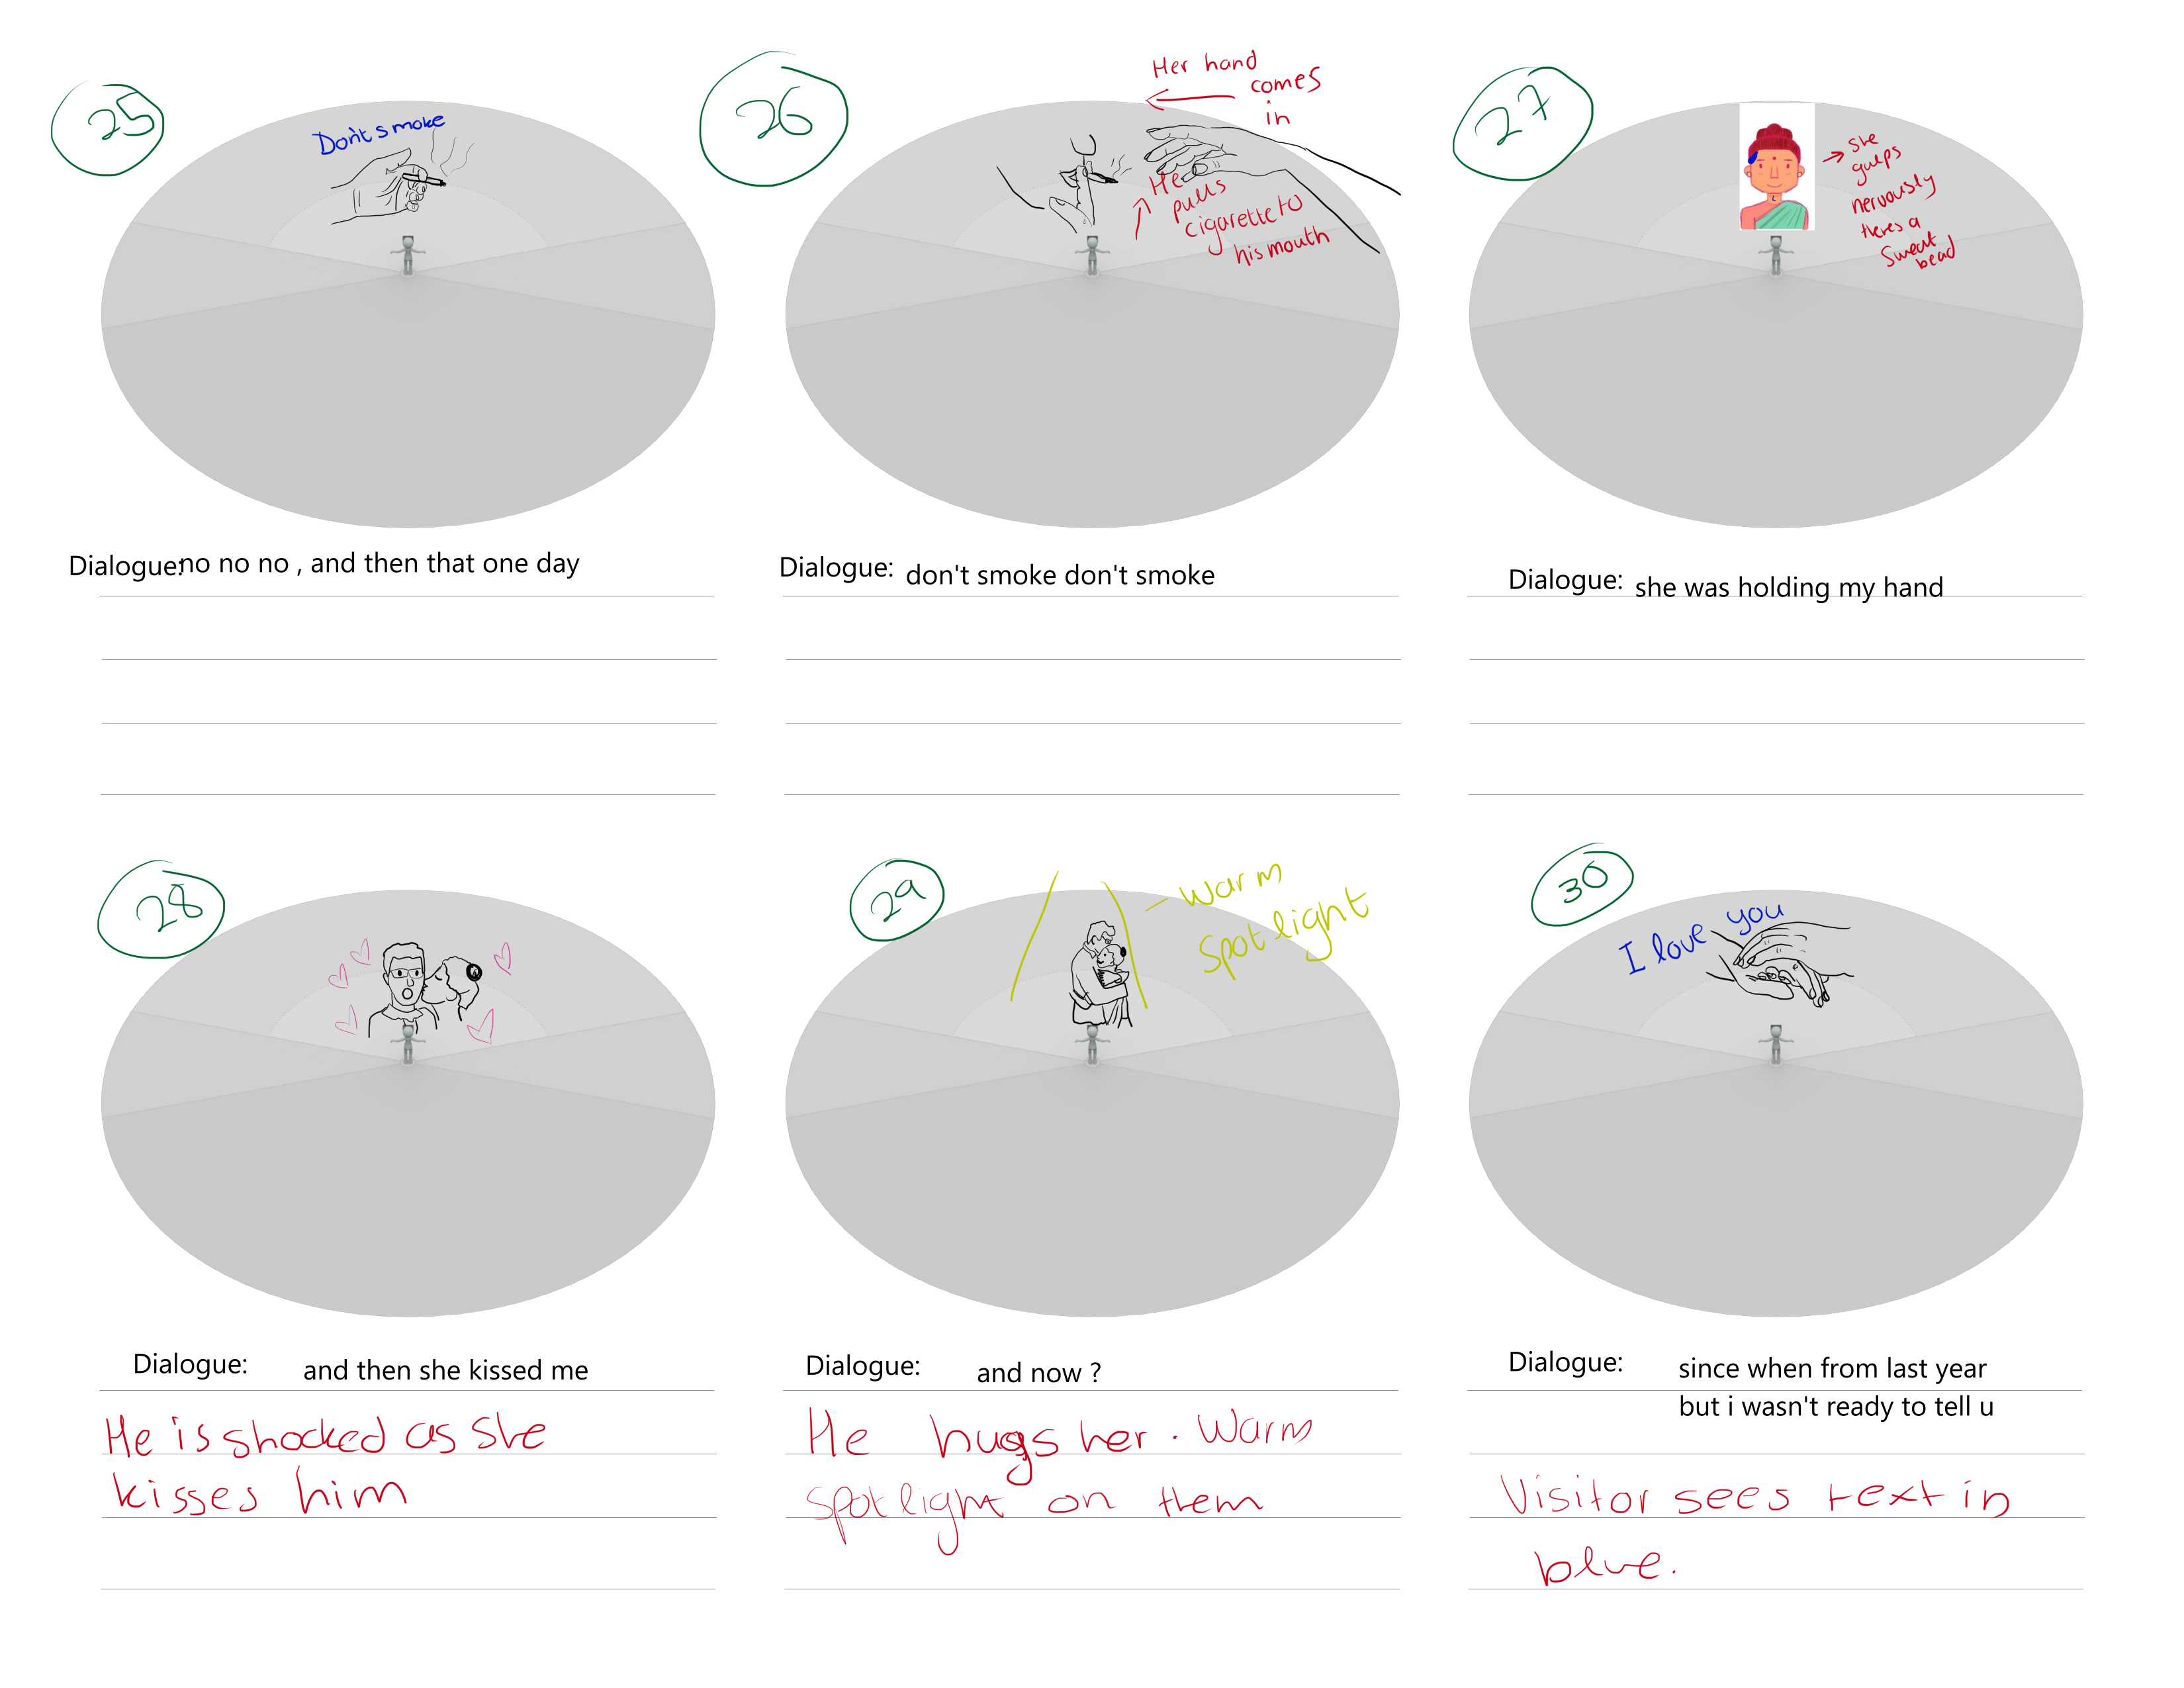 25
Don't smoke
Dialogue: no no no , and then that one day
26
Her hand
comes
in
He
pulls
cigarette to
his mouth
Dialogue: don't smoke don't smoke
27
she
gulps
nervously
theres a
sweat
bead
Dialogue: she was holding my hand
28
Dialogue: and then she kissed me
He is shocked as she
kisses him
29
- warm
spotlight
Dialogue: and now ?
He hugs her. Warm
spotlight on them
30
I love you
Dialogue: since when from last year
but i wasn't ready to tell u
Visitor sees text in
blue.